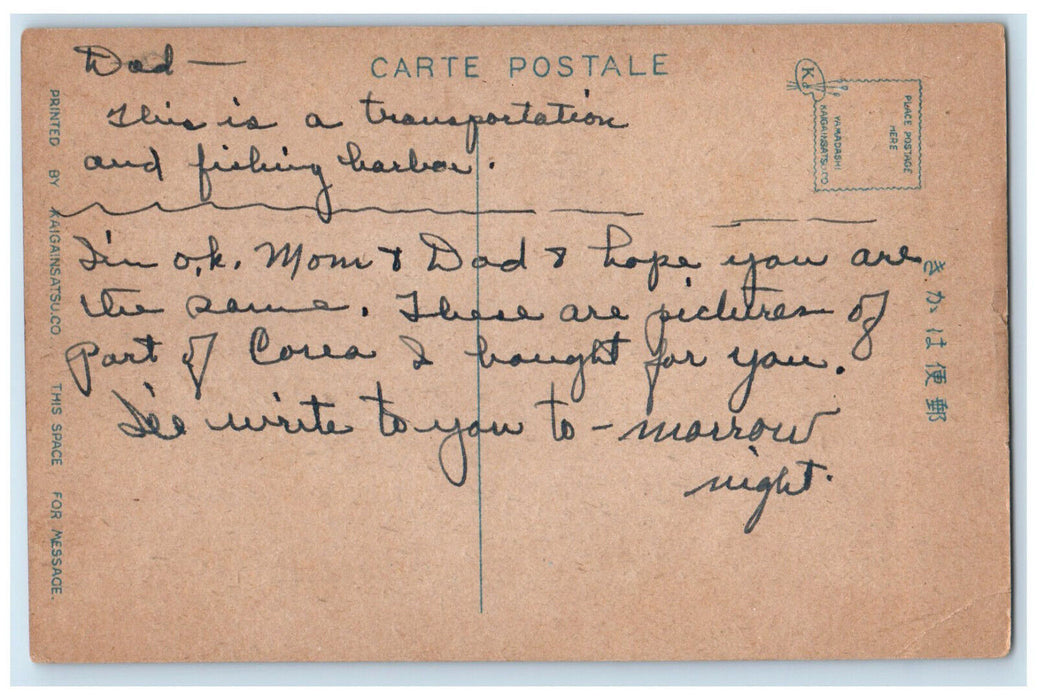 CARTE POSTALE
PLACE POSTAGE
HERE
YAMADASHI
KAIGAINSATSU.CO
K
PRINTED BY KAIGAINSATSU.CO THIS SPACE FOR MESSAGE.
きかは便郵
Dad —
This is a transportation
and fishing harbor.
I'm o.k. Mom & Dad & hope you are
the same. These are pictures of
part of Corea I bought for you.
I'll write to you to-morrow
night.